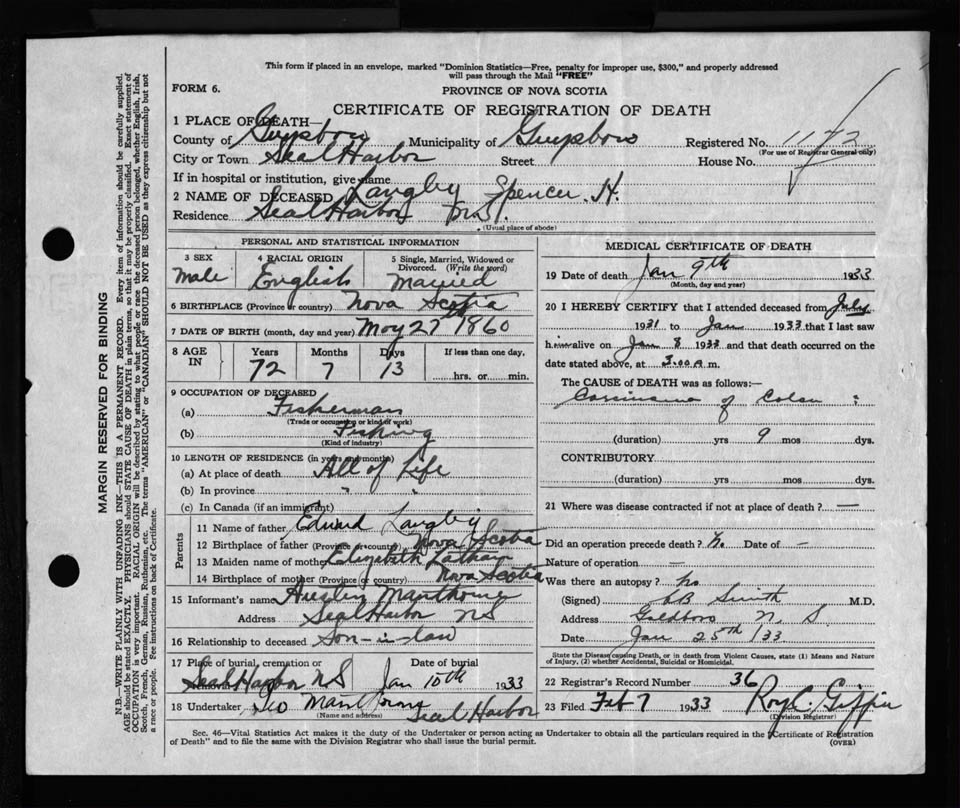 This form if placed in an envelope, marked "Dominion Statistics—Free, penalty for improper use, $300," and properly addressed
will pass through the Mail "FREE"
FORM 6.
PROVINCE OF NOVA SCOTIA
CERTIFICATE OF REGISTRATION OF DEATH
1 PLACE OF DEATH—
County of Guysboro Municipality of Guysboro Registered No. 1173
(For use of Registrar General only)
City or Town Seal Harbor Street House No.
If in hospital or institution, give name
2 NAME OF DECEASED Langley Spencer. H.
Residence Seal Harbor
(Usual place of abode)
PERSONAL AND STATISTICAL INFORMATION
3 SEX 4 RACIAL ORIGIN 5 Single, Married, Widowed or
Divorced. (Write the word)
Male English Married
6 BIRTHPLACE (Province or country) Nova Scotia
7 DATE OF BIRTH (month, day and year) May 27th 1860
8 AGE IN Years Months Days If less than one day,
72 7 13 hrs. or min.
9 OCCUPATION OF DECEASED
(a) Fisherman
(Trade or occupation or kind of work)
(b) Fishing
(Kind of industry)
10 LENGTH OF RESIDENCE (in years and months)
(a) At place of death All of Life
(b) In province " "
(c) In Canada (if an immigrant)
Parents
11 Name of father Edward Langley
12 Birthplace of father (Province or country) Nova Scotia
13 Maiden name of mother Elizabeth
14 Birthplace of mother (Province or country) Nova Scotia
15 Informant's name Manthorne
Address Seal Harbor NS
16 Relationship to deceased Son-in-law
17 Place of burial, cremation or Date of burial
Removal
Seal Harbor NS Jan 10th 1933
18 Undertaker Manthorne
(Name and address) Seal Harbor
MEDICAL CERTIFICATE OF DEATH
19 Date of death Jan 9th 1933
(Month, day and year)
20 I HEREBY CERTIFY that I attended deceased from July
1931 to Jan 1933 that I last saw
him alive on Jan 8 1933 and that death occurred on the
date stated above, at 3.00 A m.
The CAUSE of DEATH was as follows:—
Carcinoma of Colon
(duration) yrs 9 mos dys.
CONTRIBUTORY
(duration) yrs. mos. dys.
21 Where was disease contracted if not at place of death? —
Did an operation precede death? No. Date of —
Nature of operation —
Was there an autopsy? No
(Signed) Smith M.D.
Address Goldboro N. S.
Date Jan 25th /33
State the Disease causing Death, or in death from Violent Causes, state (1) Means and Nature
of Injury, (2) whether Accidental, Suicidal or Homicidal.
22 Registrar's Record Number 36
23 Filed Feb 7 1933 Roy C. Giffin
(Division Registrar)
Sec. 46—Vital Statistics Act makes it the duty of the Undertaker or person acting as Undertaker to obtain all the particulars required in the "Certificate of Registration
of Death" and to file the same with the Division Registrar who shall issue the burial permit. (OVER)
MARGIN RESERVED FOR BINDING
N.B.—WRITE PLAINLY WITH UNFADING INK—THIS IS A PERMANENT RECORD. Every item of information should be carefully supplied.
AGE should be stated EXACTLY. PHYSICIANS should STATE CAUSE OF DEATH in plain terms, so that it may be properly classified. Exact statement of
OCCUPATION is very important. RACIAL ORIGIN will be described by stating to what people or race the deceased person belonged, whether English, Irish,
Scotch, French, German, Russian, Ruthenian, etc. The terms "AMERICAN" or "CANADIAN" SHOULD NOT BE USED as they express citizenship but not
a race or people. See instructions on back of Certificate.